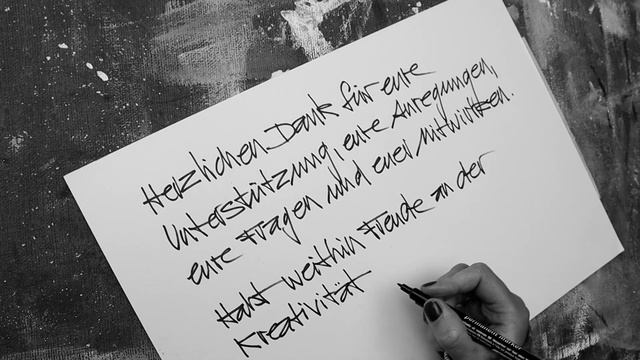 Herzlichen Dank für eure
Unterstützung, eure Anregungen,
eure Fragen und euer mitwirken.
Habt weithin Freude an der
Kreativität
permanent marker